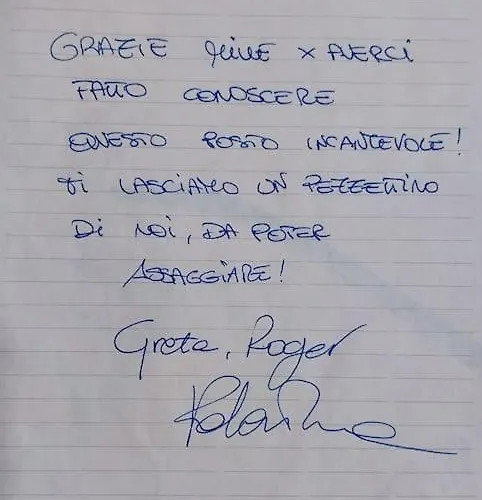 GRAZIE mille x AVERCI
FATTO CONOSCERE
QUESTO POSTO INCANTEVOLE!
ti LASCIAMO UN PEZZETTINO
Di NOi, DA POTER
ASSAGGIARE!
Greta, Roger